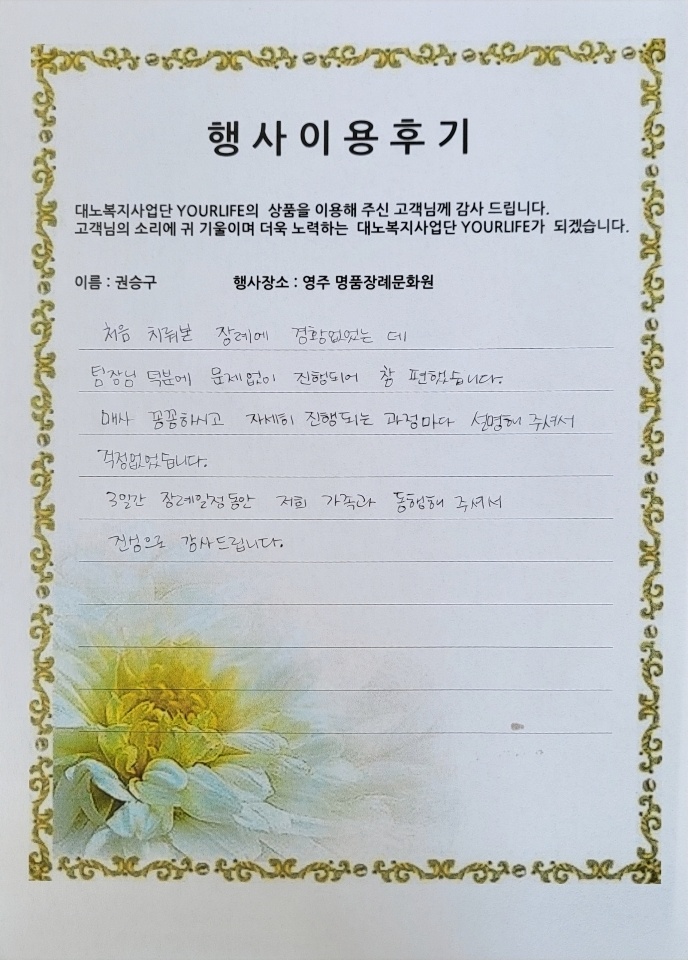 행사이용후기
대노복지사업단 YOURLIFE의 상품을 이용해 주신 고객님께 감사 드립니다.
고객님의 소리에 귀 기울이며 더욱 노력하는 대노복지사업단 YOURLIFE가 되겠습니다.
이름 : 권승구 행사장소 : 영주 명품장례문화원
처음 치뤄본 장례에 경황없었는 데
팀장님 덕분에 문제없이 진행되어 참 편했습니다.
매사 꼼꼼하시고 자세히 진행되는 과정마다 설명해 주셔서
걱정없었습니다.
3일간 장례일정동안 저희 가족과 동행해 주셔서
진심으로 감사드립니다.